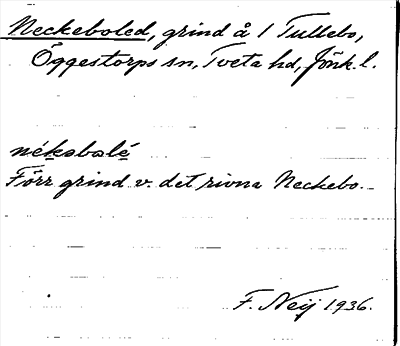 Neckeboled, grind å 1 Tullebo,
Öggestorps sn, Tveta hd, Jönk. l.
nékabolé
Förr grind v. det rivna Neckebo.
F. Neij 1936.